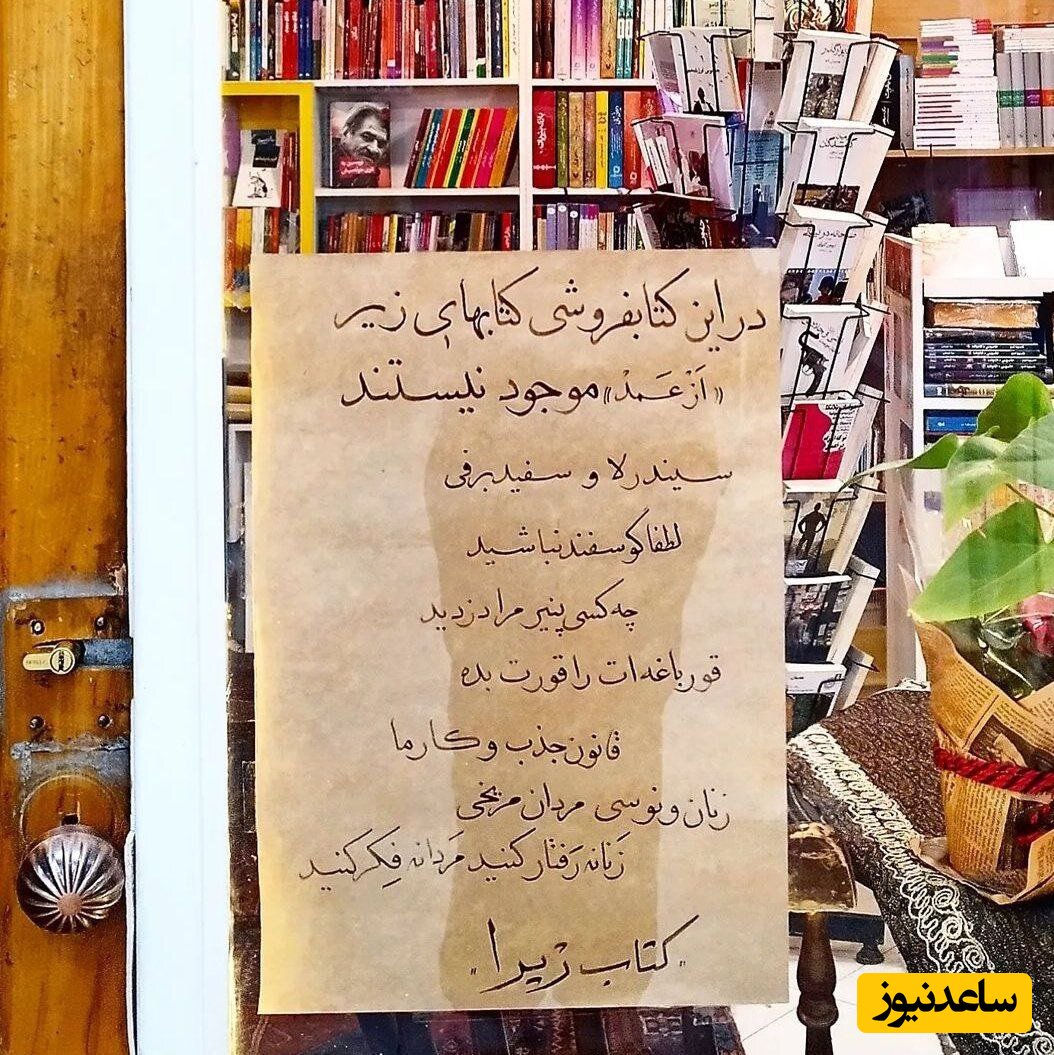 در این کتابفروشی کتابهای زیر
«اَزْ عَمَدْ» موجود نیستند
سیندرلا و سفیدبرفی
لطفا گوسفند نباشید
چه کسی پنیر مرا دزدید
قورباغه ات را قورت بده
قانون جذب و کارما
زنان ونوسی مردان مریخی
زَنانه رَفتار کنید مَردانه فِکر کنید
"کتاب زیرا"
ساعدنیوز